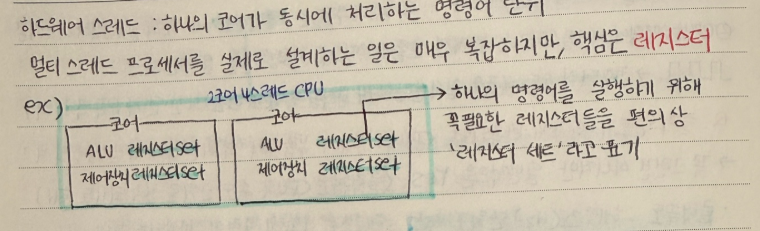 하드웨어 스레드 : 하나의 코어가 동시에 처리하는 명령어 단위
멀티 스레드 프로세서를 실제로 설계하는 일은 매우 복잡하지만, 핵심은 레지스터
ex)
2코어 4스레드 CPU
코어
ALU 레지스터set
제어장치 레지스터set
코어
ALU 레지스터set
제어장치 레지스터set
→ 하나의 명령어를 실행하기 위해
꼭 필요한 레지스터들을 편의상
'레지스터 세트'라고 표기